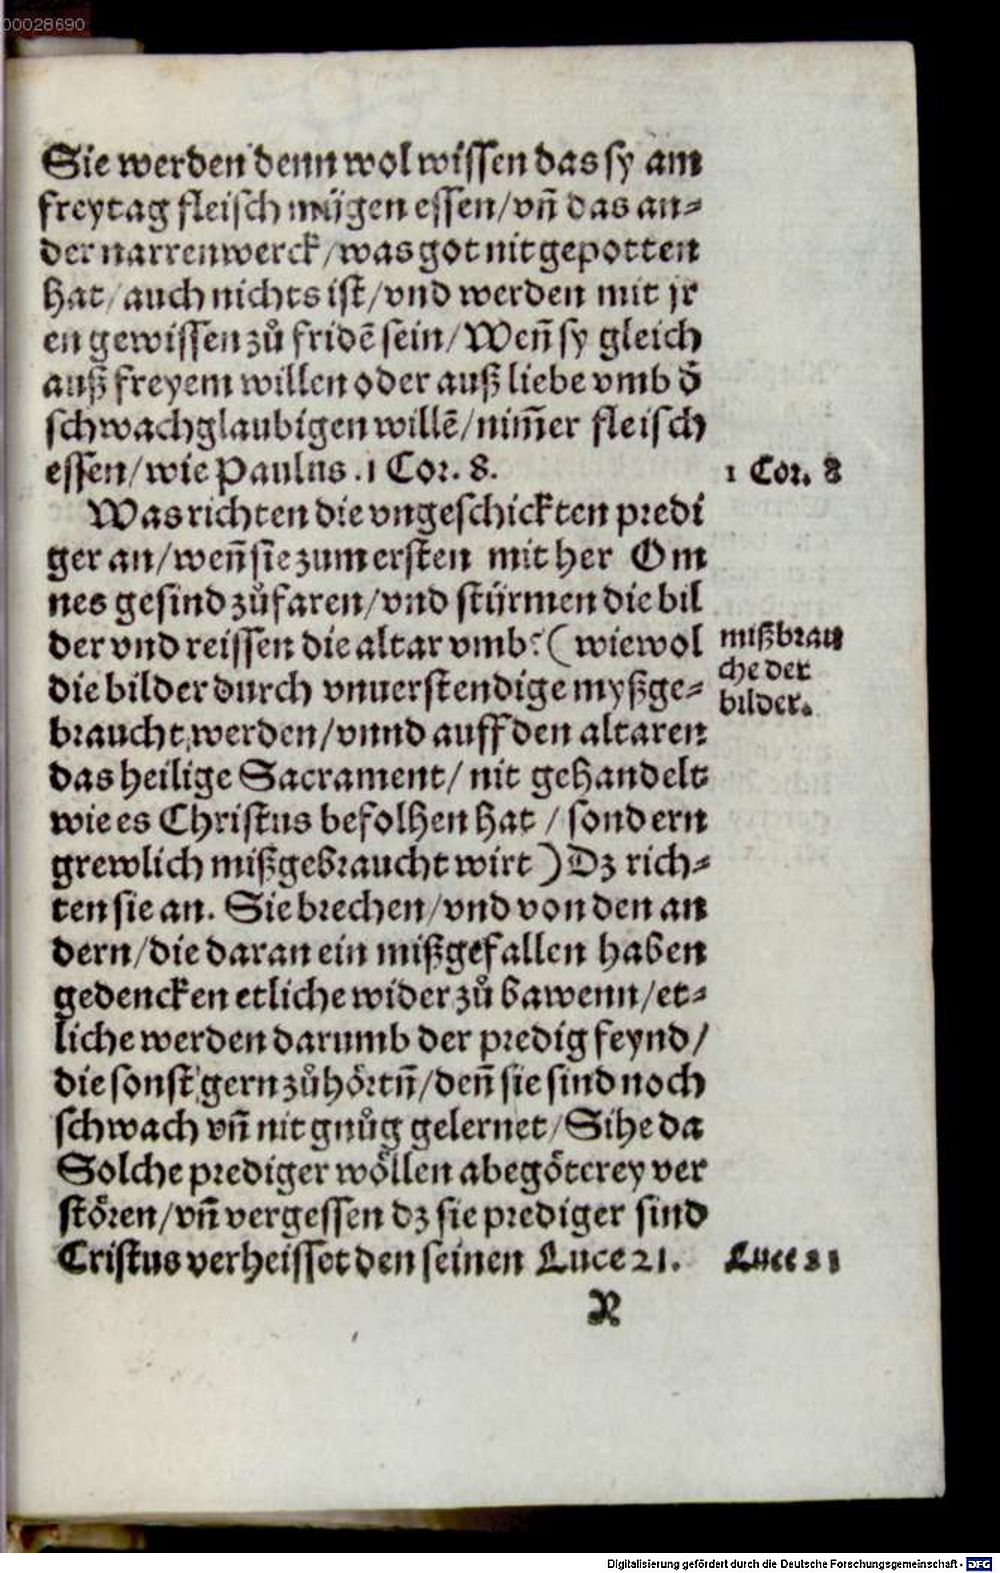 00028690
Sie werden denn wol wissen das sy am
freytag fleisch mügen essen/vñ das an⸗
der narrenwerck/was got nit gepotten
hat/auch nichts ist/vnd werden mit jr
en gewissen zů fridẽ sein/Weñ sy gleich
auß freyem willen oder auß liebe vmb d̄
schwachglaubigen willẽ/nim̃er fleisch
essen/wie Paulus .1 Cor. 8.
1 Cor. 8
Was richten die vngeschickten predi
ger an/weñ sie zum ersten mit her Om
nes gesind zů faren/vnd stürmen die bil
der vnd reissen die altar vmb? (wiewol
die bilder durch vnuerstendige myßge⸗
braucht werden/vnnd auff den altaren
mißbrau
che der
bilder.
das heilige Sacrament/ nit gehandelt
wie es Christus befolhen hat / sondern
grewlich mißgebraucht wirt) Dz rich⸗
ten sie an. Sie brechen/vnd von den an
dern/die daran ein mißgefallen haben
gedencken etliche wider zů bawenn/et⸗
liche werden darumb der predig feynd/
die sonst gern zůhörtñ/deñ sie sind noch
schwach vñ nit gnůg gelernet/Sihe da
Solche prediger wöllen abegötterey ver
stören/vñ vergessen dz sie prediger sind
Cristus verheisset den seinen Luce 21.
Luce 21
R
Digitalisierung gefördert durch die Deutsche Forschungsgemeinschaft - DFG